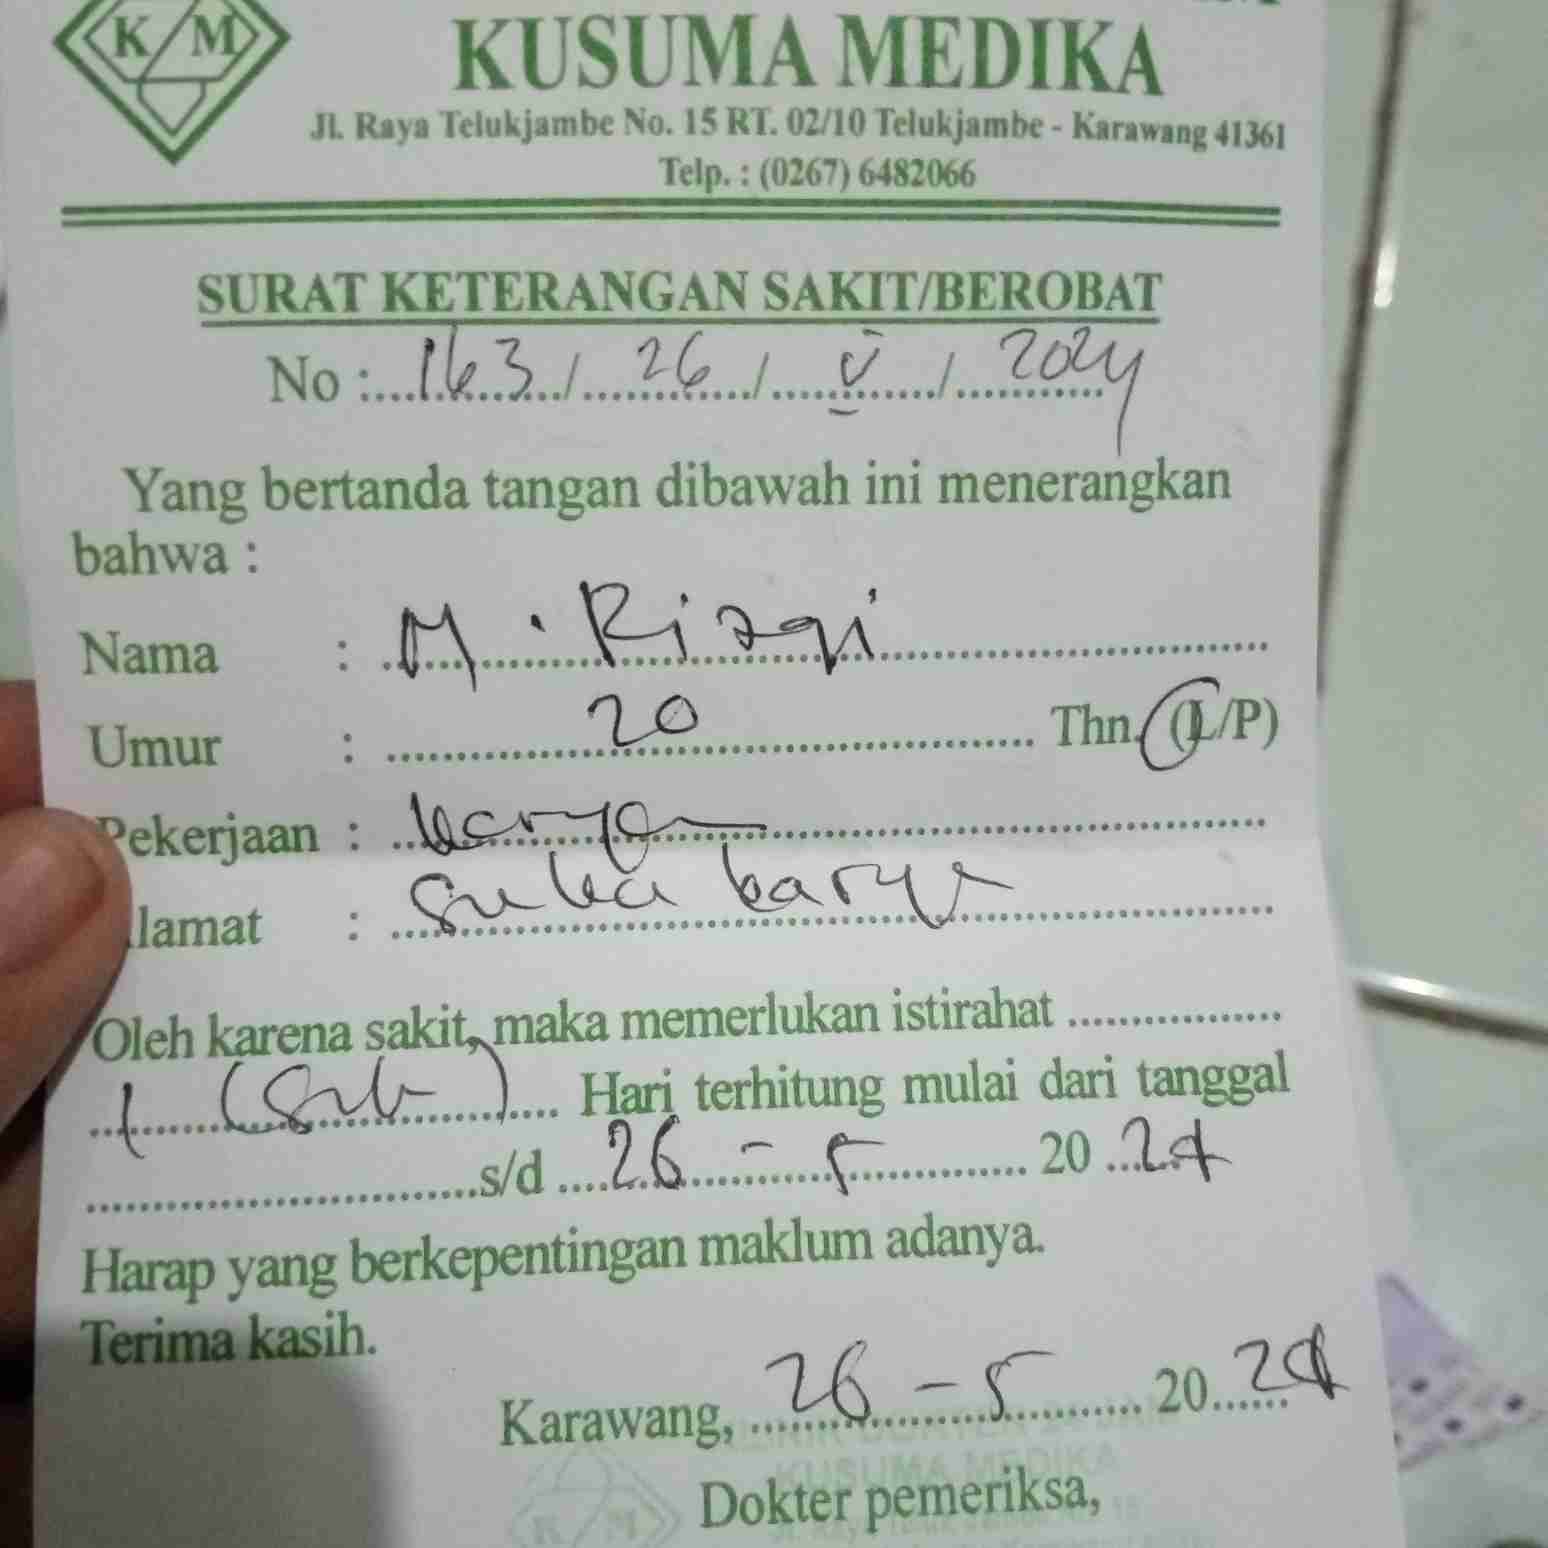 K M
KUSUMA MEDIKA
Jl. Raya Telukjambe No. 15 RT. 02/10 Telukjambe - Karawang 41361
Telp. : (0267) 6482066
SURAT KETERANGAN SAKIT/BEROBAT
No : 163 / 26 / V / 2024
Yang bertanda tangan dibawah ini menerangkan
bahwa :
Nama : M. Rizqi
Umur : 20 Thn. (L/P)
Pekerjaan : karya
lamat : Suka karya
Oleh karena sakit, maka memerlukan istirahat
1 (Satu) Hari terhitung mulai dari tanggal
s/d 26 - 5 20 24
Harap yang berkepentingan maklum adanya.
Terima kasih.
Karawang, 26 - 5 20 24
KUSUMA MEDIKA
Dokter pemeriksa,
K M